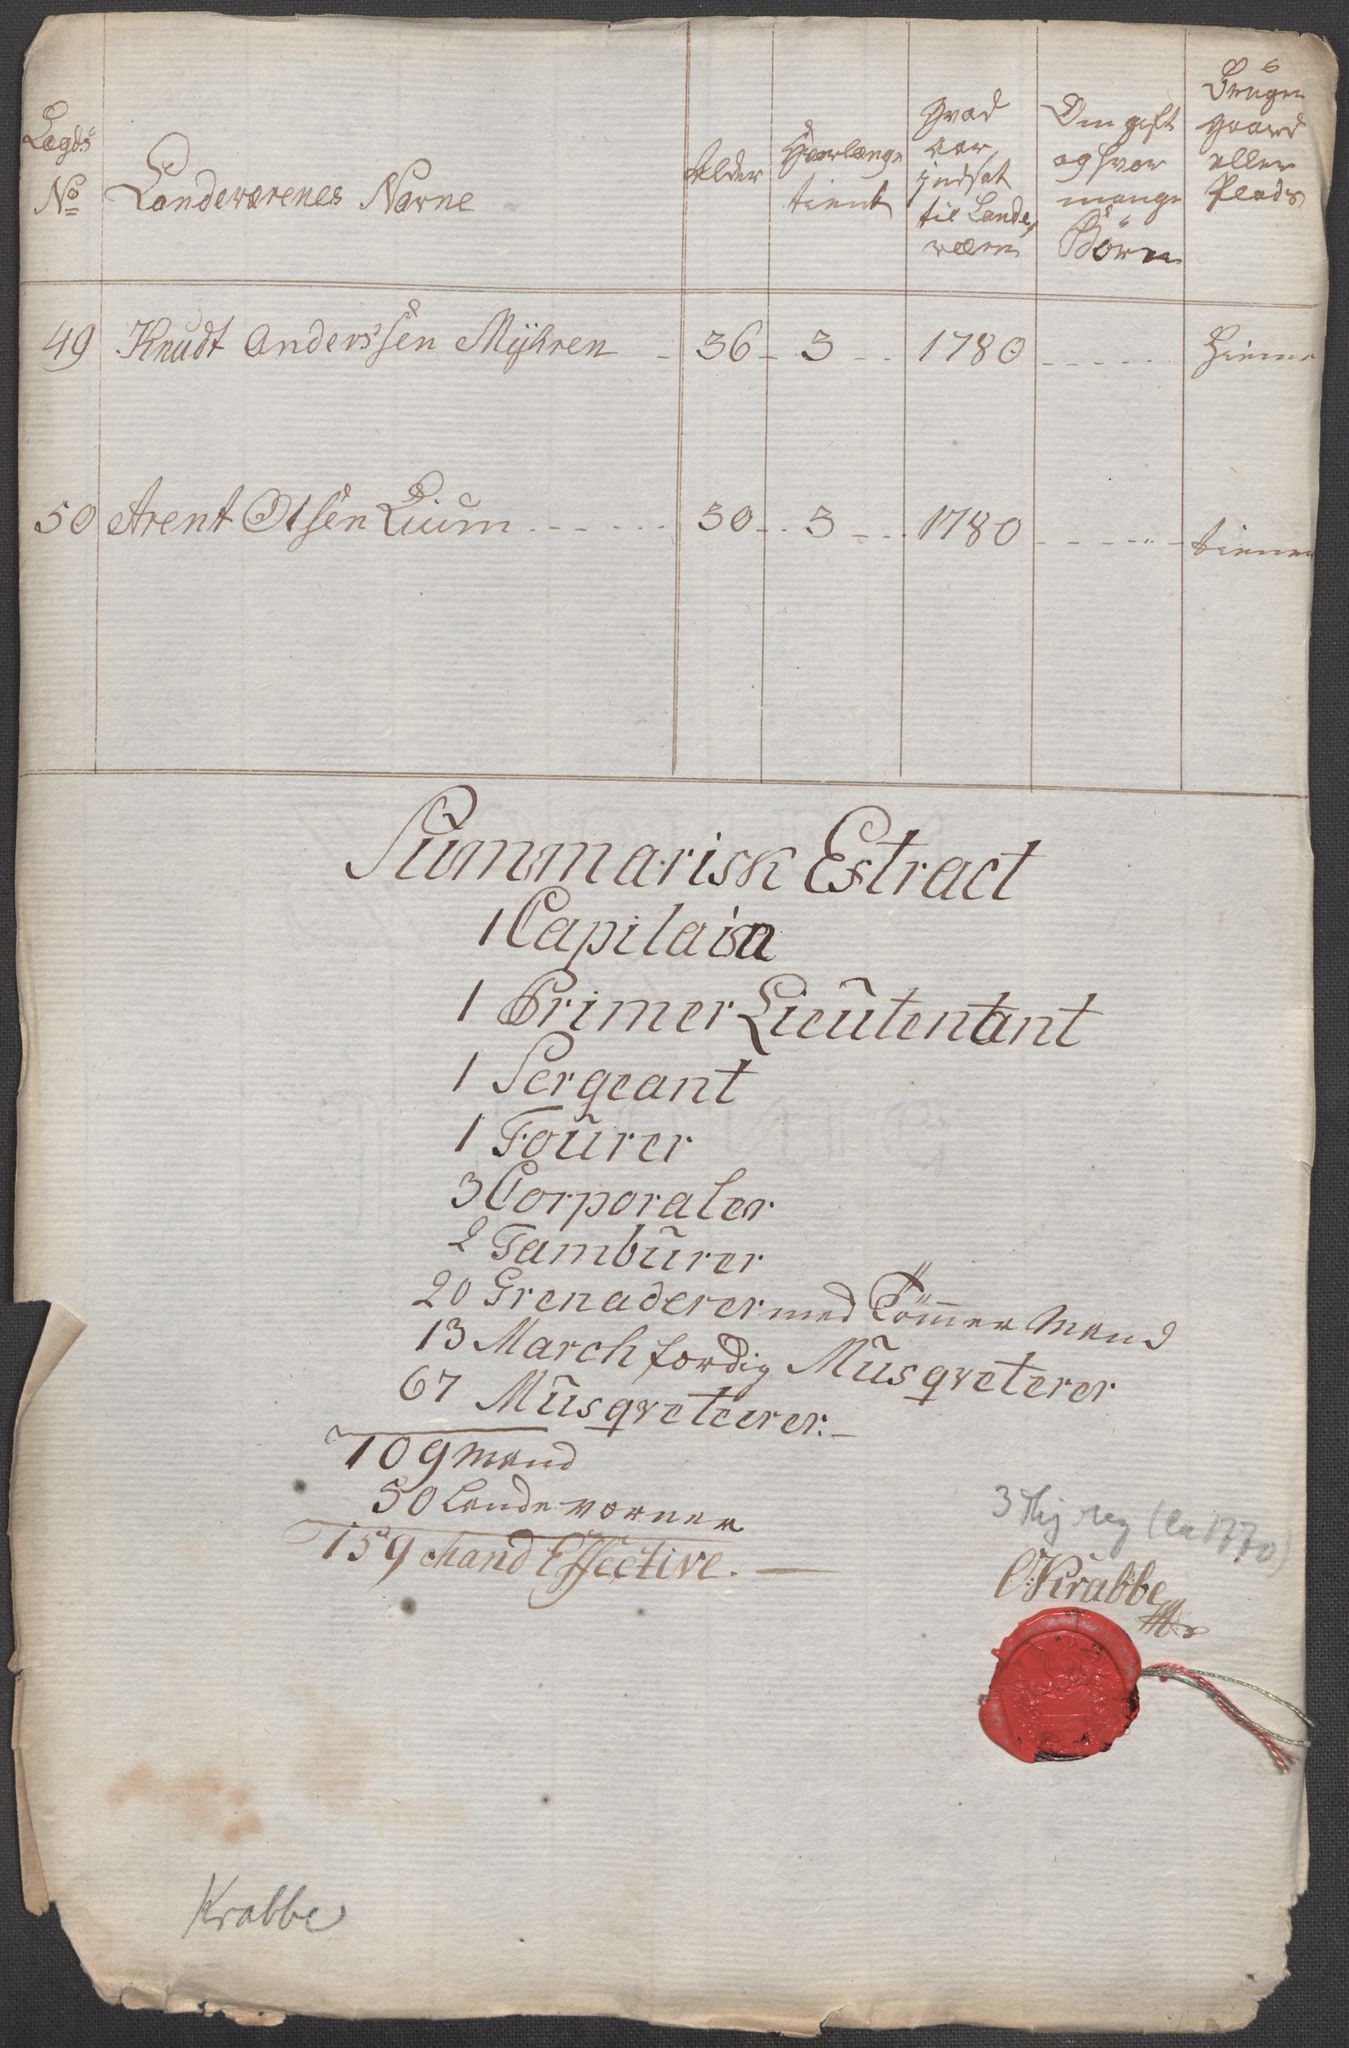 Legds No | Landeværenes Navne | Alder | Hvorlænge tient | Hvad aar indsat til Landeværn | Om gift og hvor mange Börn | Bruger gaard eller Plads
49 Knudt Anderssen Mÿhren 36 3 1780 hiemme
50 Arent Olsen Lium 30 3 1780 tiener
Summarisk Estract
1 Capitain
1 Primer Lieutenant
1 Sergeant
1 Fourer
3 Corporaler
2 Tamburer
20 Grenaderer med Tömmer Mend
13 March ferdig Musqveterer
67 Musqveteerer.
109 Mend
50 Landeværner
159 Mand Effective.
3 (ca 1770)
C Krabbe
Krabbe